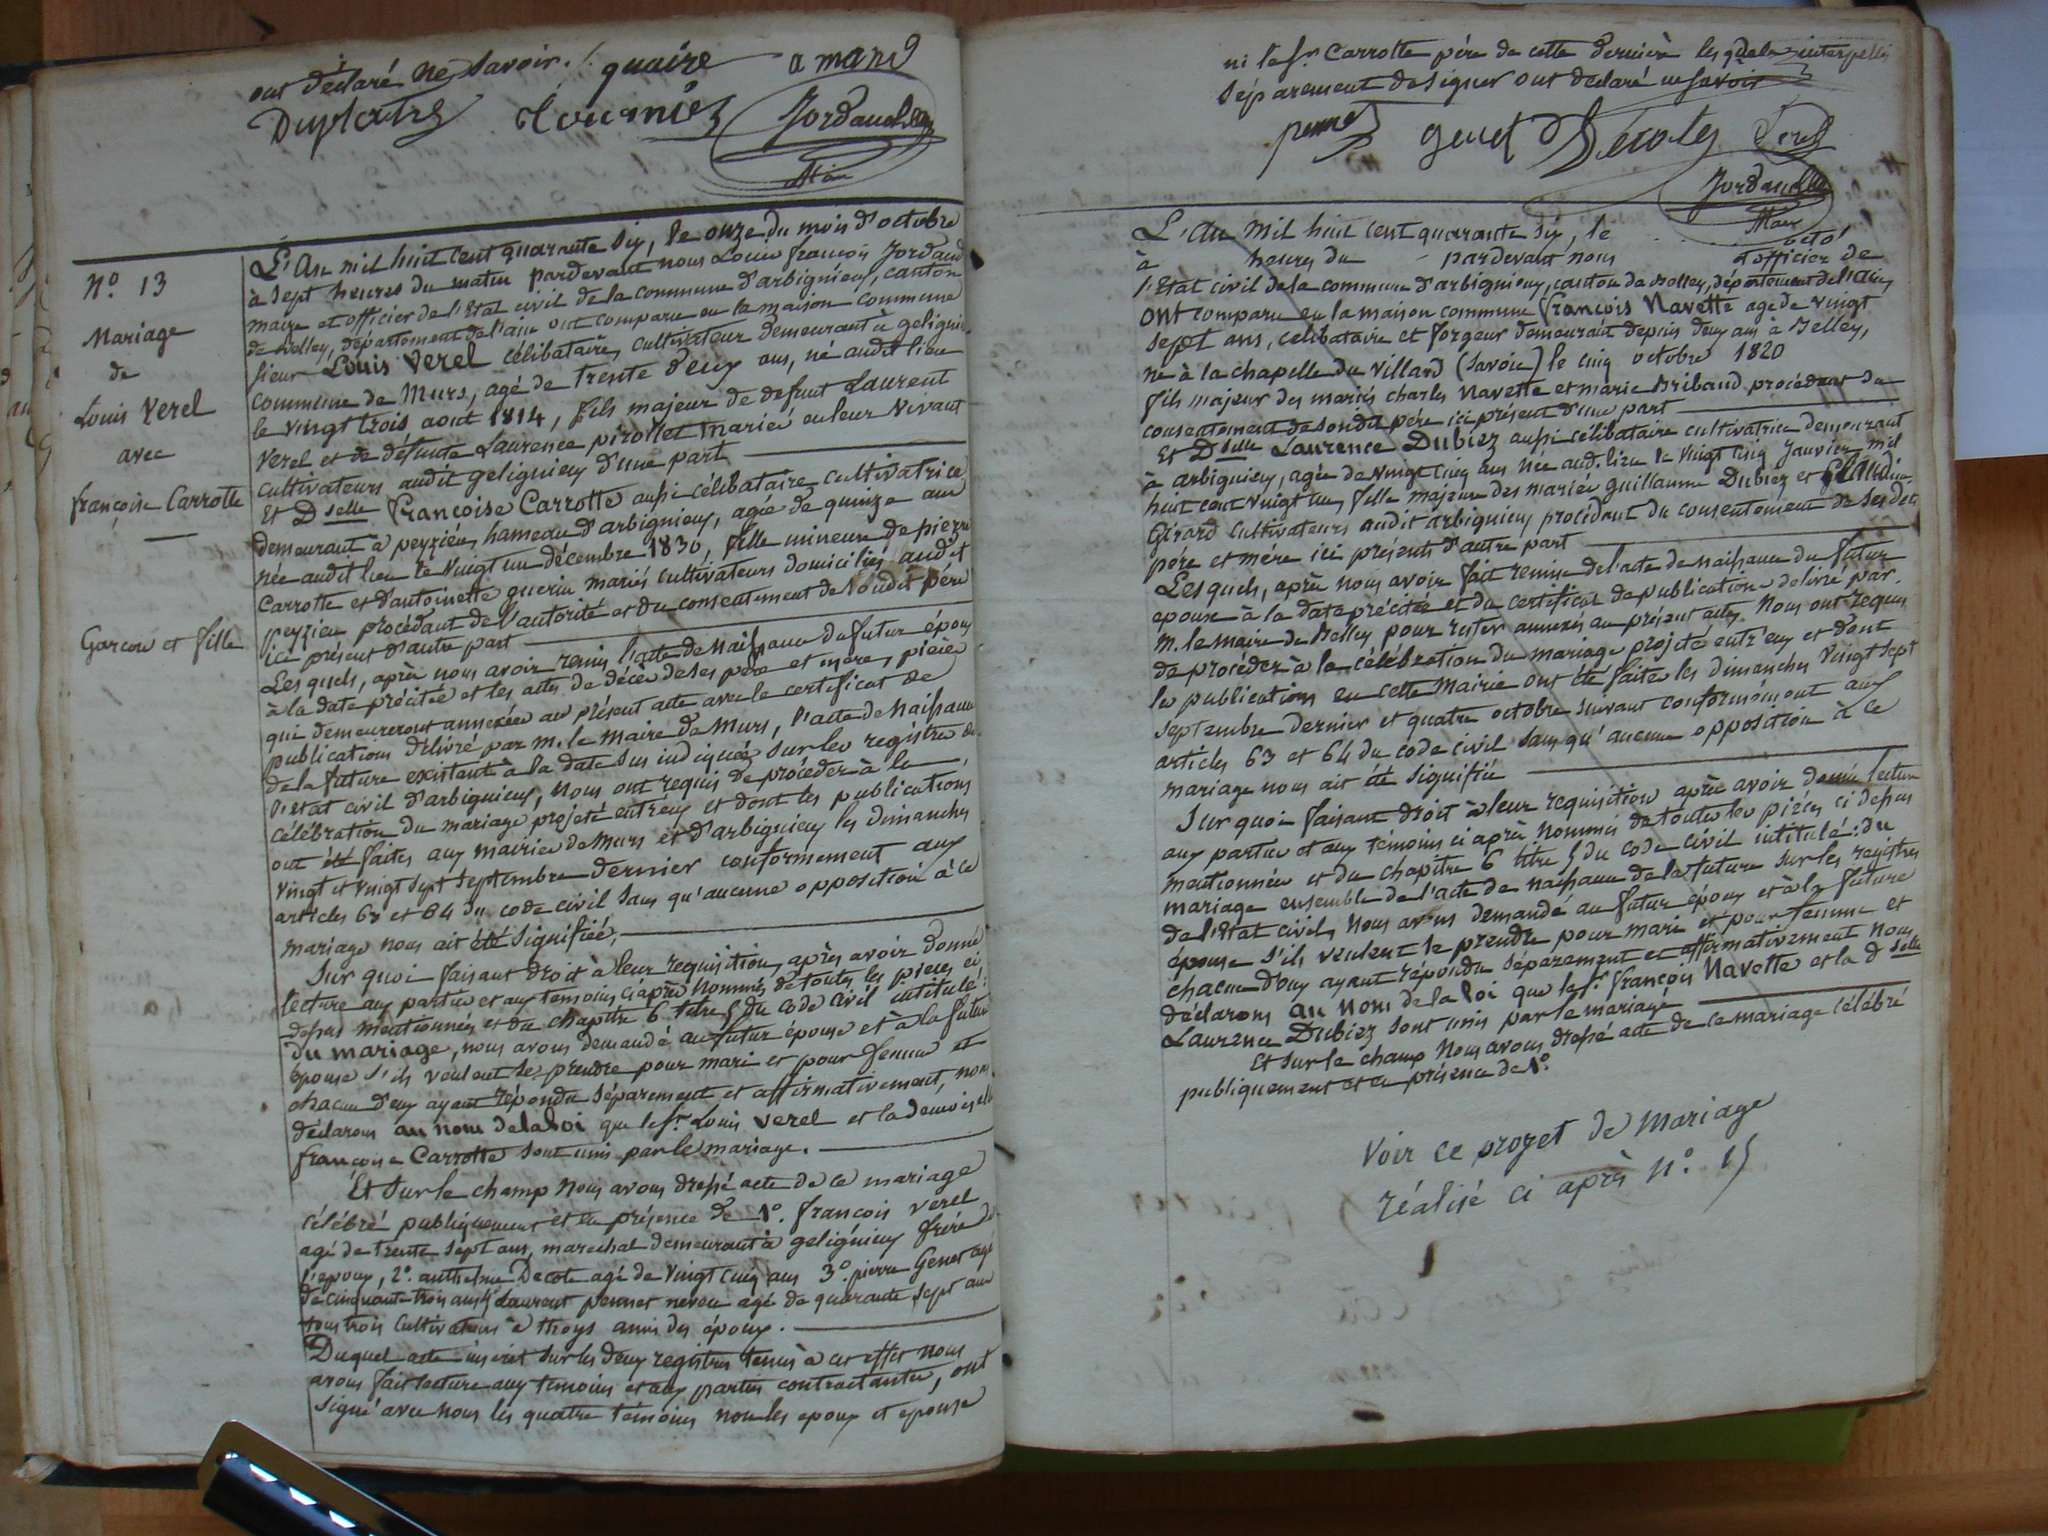 ont déclaré ne savoir ./. quaire amand
Duplatre Tournier Jordan
Maire
N° 13
Mariage
de
Louis Verel
avec
françoise Carrotte
Garcon et fille
L'An mil huit cent quarante six, le onze du mois d'octobre
à sept heures du matin pardevant nous Louis françois Jordan
maire et officier de l'Etat civil de la commune d'arbignieu, canton
de Belley, département de l'ain ont comparu en la maison commune
sieur Louis Verel célibataire, cultivateur demeurant à gelignieu
commune de Murs, agé de trente deux ans, né audit lieu
le vingt trois aout 1814, fils majeur de defunt Laurent
Verel et de défunte Laurence pirollet mariés en leur vivant
cultivateurs audit gelignieu d'une part
Et Dselle Françoise Carrotte aussi célibataire cultivatrice
demeurant à peyzieu, hameau d'arbignieu, agée de quinze ans
née audit lieu le vingt un décembre 1830, fille mineure de pierre
Carrotte et d'antoinette guerin mariés cultivateurs domiciliés audit
peyzieu procédant de l'autorité et du consentement de sondit père
ici présent d'autre part
Lesquels, après nous avoir remis l'acte de naissance du futur époux
à la date précitée et les actes de décès de ses père et mère, pièces
qui demeureront annexées au présent acte avec le certificat de
publications délivré par m. le maire de Murs, l'acte de naissance
de la future existant à la date sus indiquée sur les registres de
l'Etat civil d'arbignieu, nous ont requis de procéder à la
célébration du mariage projeté entr'eux et dont les publications
ont été faites aux mairies de Murs et d'arbignieu les dimanches
vingt et vingt sept septembre dernier conformement aux
articles 63 et 64 du code civil sans qu'aucune opposition à ce
mariage nous ait été signifiée,
Sur quoi faisant droit à leur requisition, après avoir donné
lecture aux parties et aux temoins ci après nommés de toutes les pieces ci
dessus mentionnées et du chapitre 6 titre 5 du Code Civil intitulé :
du mariage, nous avons demandé au futur épouse et à la future
épouse s'ils veulent se prendre pour mari et pour femme et
chacun d'eux ayant répondu séparement et affirmativement, nous
déclarons au nom de la loi que le sr. Louis Verel et la demoiselle
françoise Carrotte sont unis par le mariage.
Et sur le champ nous avons dressé acte de ce mariage
célébré publiquement et en présence de 1°. françois verel
agé de trente sept ans, marechal demeurant à gelignieu frère de
l'epoux, 2°. anthelme Decote agé de vingt cinq ans 3°. pierre Genet agé
de cinquante trois ans 4° Laurent pernet neveu agé de quarante sept ans
tous trois cultivateurs à thoys amis des époux.
Duquel acte inscrit sur les deux registres tenus à cet effet nous
avons fait lecture aux temoins et aux parties contractantes, ont
signé avec nous les quatre témoins non les epoux et epouse
ni le sr. Carrotte père de cette dernière lesquels interpellés
séparement de signer ont declaré ne savoir
pernet genet Décote Verel
Jordan
Maire
L'an mil huit cent quarante six, le octo'
à heures du pardevant nous officier de
l'Etat civil de la commune d'arbignieu, canton de Belley, département de l'ain
ont comparu en la maison commune françois Navette agé de vingt
sept ans, celibataire et forgeur demeurant depuis deux ans à Belley,
né à la chapelle du villard (Savoie) le cinq octobre 1820
fils majeur des mariés charles Navette et marie Bribaud procédant du
consentement de sondit père ici présent d'une part
Et Dselle Laurence Dubiez aussi célibataire cultivatrice demeurant
à arbignieu, agée de vingt cinq ans née aud. lieu le vingt cinq Janvier mil
huit cent vingt un, fille majeure des mariés guillaume Dubiez et Claudine
Girard cultivateurs audit arbignieu procédant du consentement de sesdits
père et mère ici présents d'autre part
Lesquels, après nous avoir fait remise de l'acte de naissance du futur
epoux à la date précitée et du certificat de publication délivré par
m. le maire de Belley, pour rester annexés au présent acte, nous ont requis
de procéder à la célébration du mariage projeté entr'eux et dont
les publications en cette Mairie ont été faites les dimanches vingt sept
septembre dernier et quatre octobre suivant conformément aux
articles 63 et 64 du code civil sans qu'aucune opposition à ce
mariage nous ait été signifiée
Sur quoi faisant droit à leur requisition après avoir donné lecture
aux parties et aux témoins ci après nommés de toutes les pièces ci dessus
mentionnées et du chapitre 6 titre 5 du code civil intitulé : du
mariage ensemble de l'acte de naissance de la future sur les registres
de l'Etat civil, nous avons demandé au futur époux et à la future
épouse s'ils veulent se prendre pour mari et pour femme et
chacun d'eux ayant répondu séparement et affirmativement nous
déclarons au nom de la loi que le sr. françois Navette et la dselle
Laurence Dubiez sont unis par le mariage
Et sur le champ nous avons dressé acte de ce mariage célébré
publiquement et en présence de 1°.
Voir ce projet de Mariage
réalisé ci après N°. 15